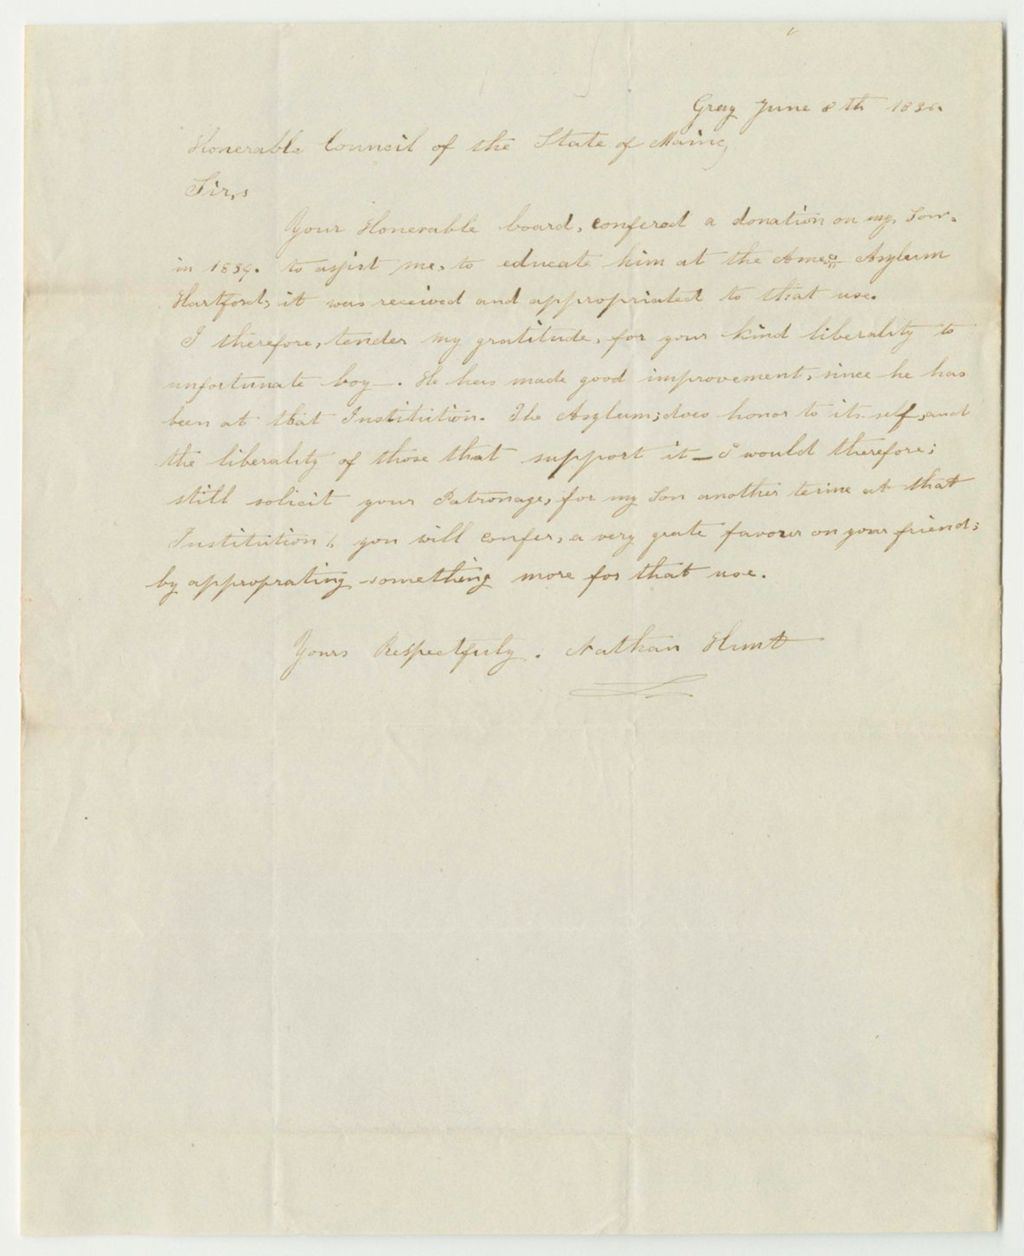 Gray June 8th
Honerable Council of the State of Maine,
Sir,s
Your Honerable board, confered a donation on my, Son.
in to assist me, to educate him at the Amern Asylum
Hartford, it was received and appropriated to that use.
I therefore, tender my gratitude, for your kind liberality to
unfortunate boy —. He has made good improvement, since he has
been at that Institution. The Asylum; does honor to its self, and
the liberality of those that support it — I would therefore;
still solicit your Patronage, for my Son another terme at that
Institution & you will confer, a very grate favour on your friend;
by approprating something more for that use.
Yours Respectfuly. Nathan Hunt